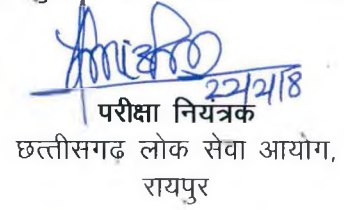 22/2/18
परीक्षा नियंत्रक
छत्तीसगढ लोक सेवा आयोग,
रायपुर